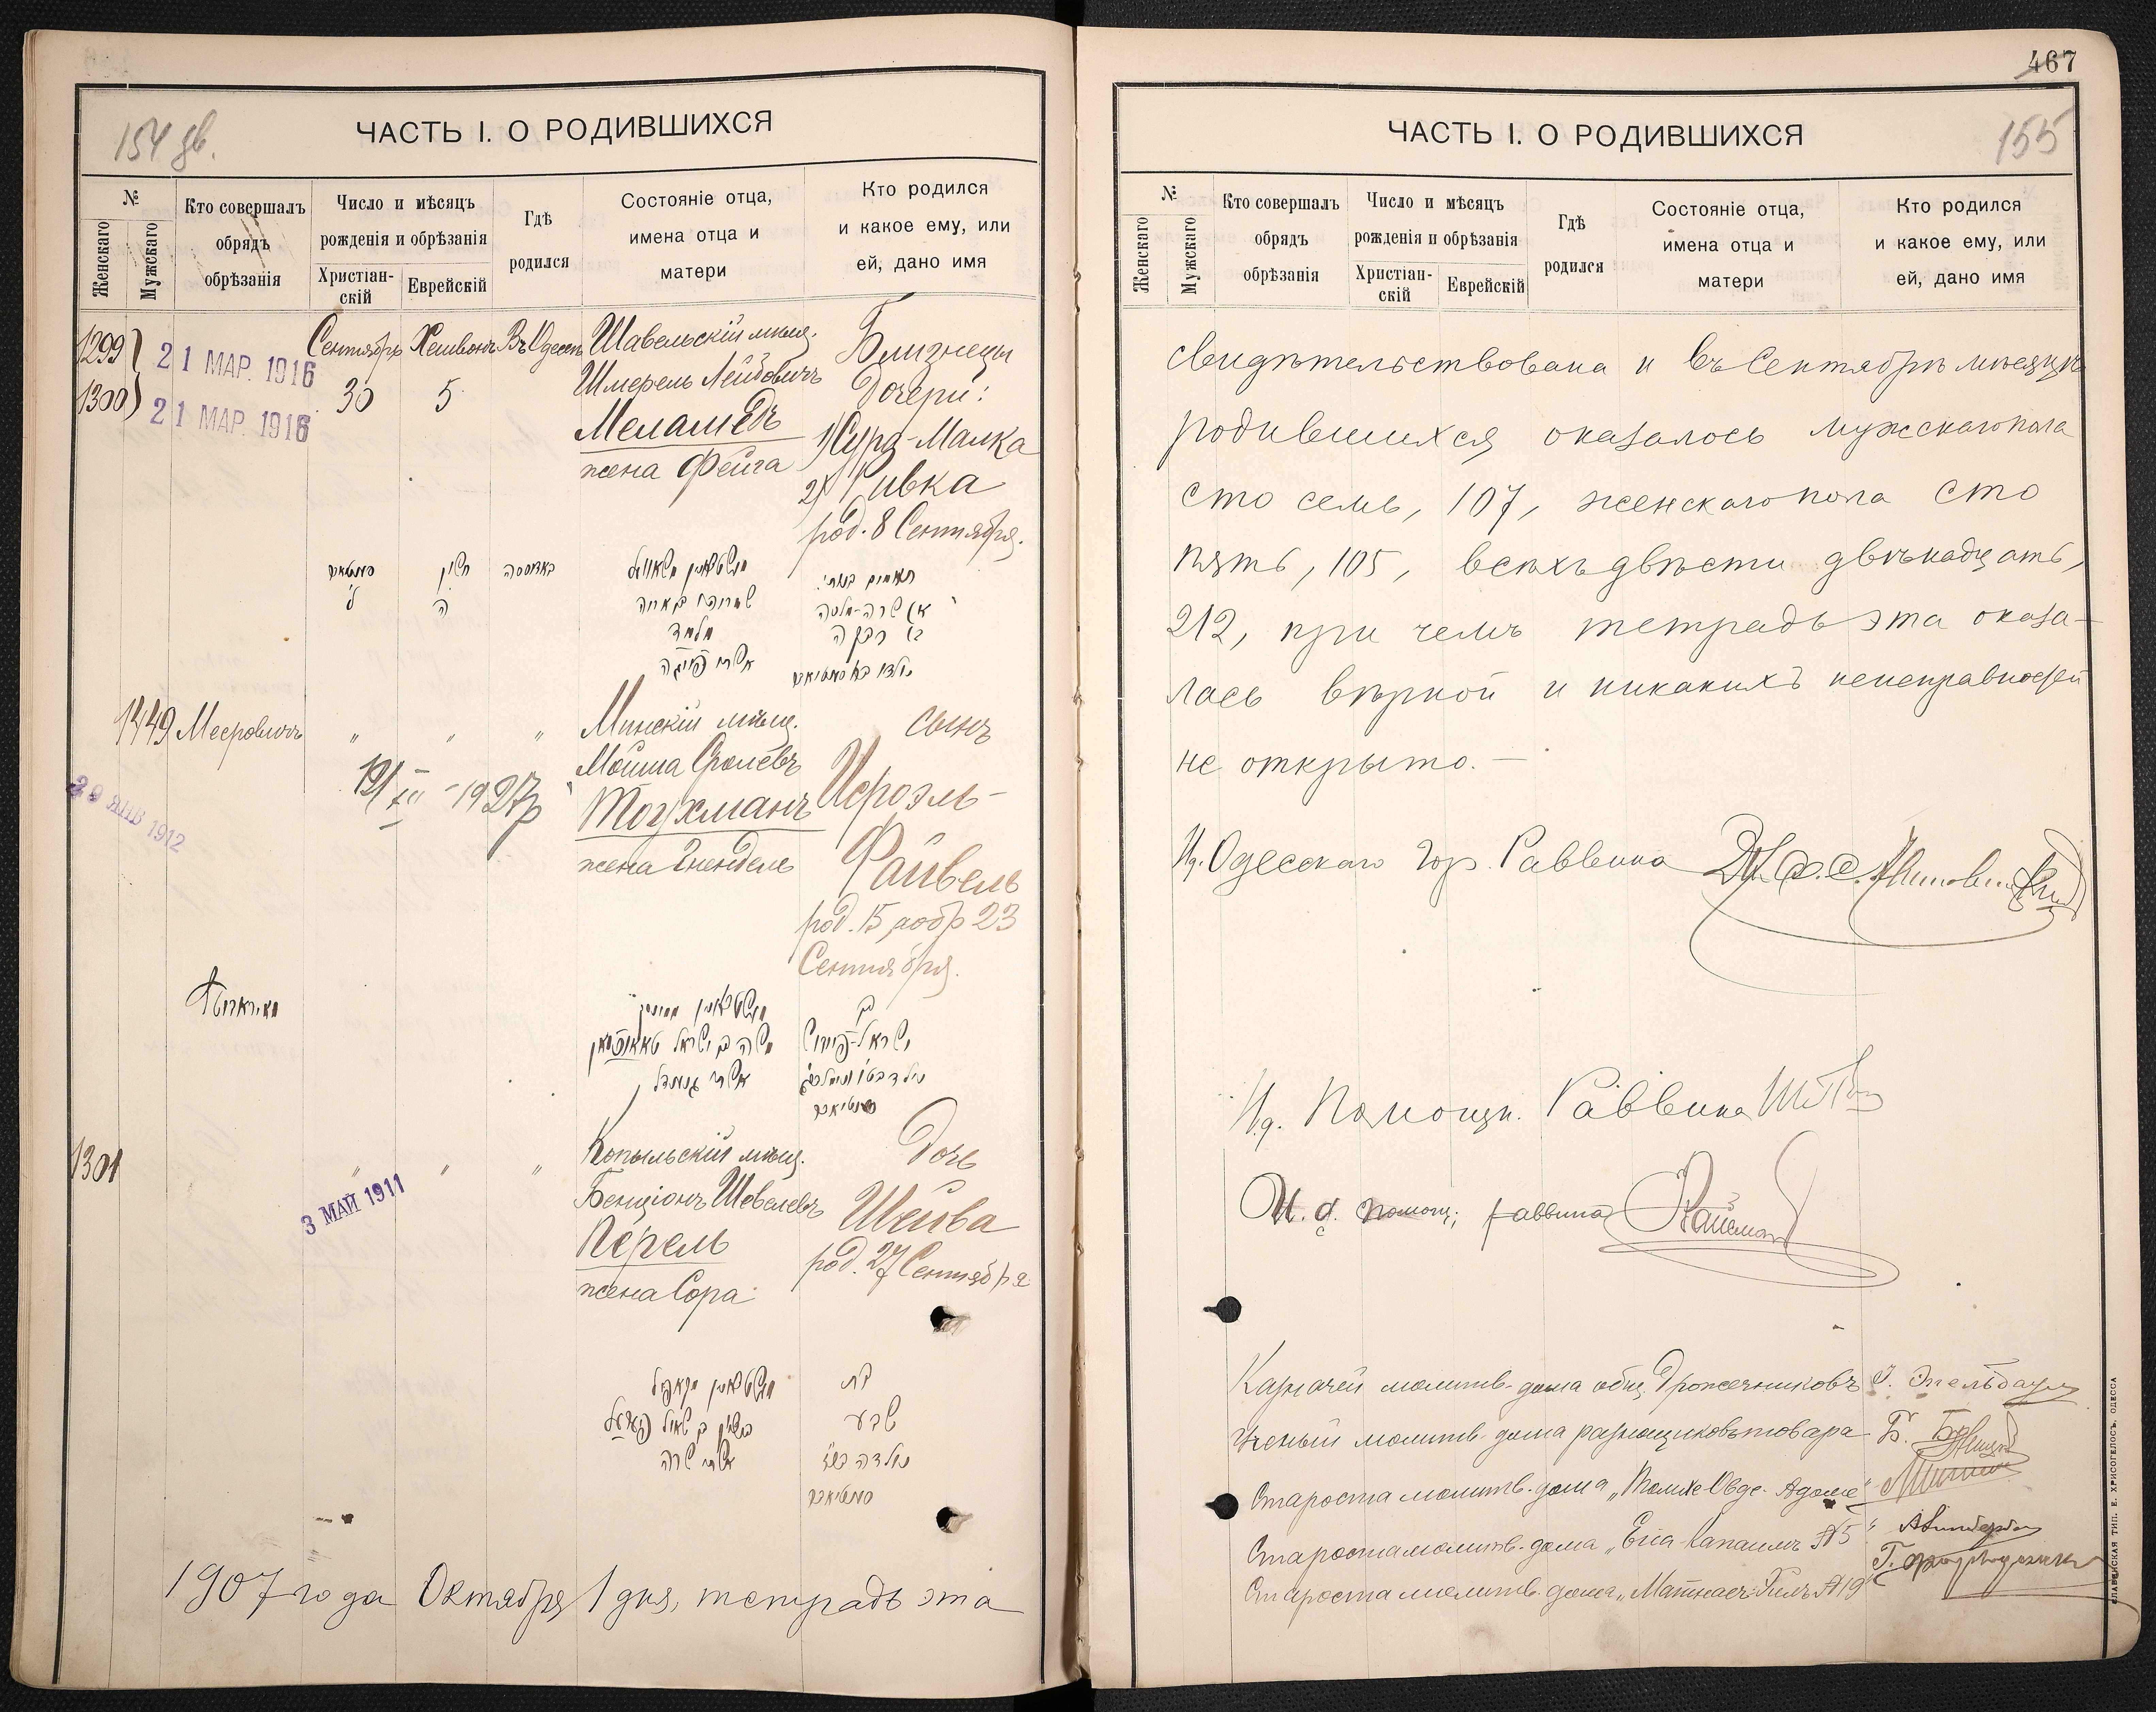 154 об.
ЧАСТЬ I. О РОДИВШИХСЯ
№
Женскаго
Мужскаго
Кто совершалъ
обрядъ
обрѣзанія
Число и мѣсяцъ
рожденія и обрѣзанія
Христіан-
скій
Еврейскій
Гдѣ
родился
Состояніе отца,
имена отца и
матери
Кто родился
и какое ему, или
ей, дано имя
1299
1300
21 МАР. 1916
21 МАР. 1916
Сентябрь
30
Хешвонъ
5
Въ Одессѣ
Шавельскій мѣщ.
Шмерель Лейбовичъ
Меламедъ
жена Фейга
Близнецы
Дочери:
1) Сура-Малка
2) Ривка
род. 8 Сентября.
ל
חשון
ה
באדעססה
מלמד
אשתו פייגה
תאומים בנות:
א) שרה-מלכה
ב) רבקה
1449
Мееровичъ
29 ЯНВ 1912
" " "
12/III-1927р
Минскій мѣщ.
Мойша Сролевъ
Тоухманъ
жена Гнендель
сынъ
Исроэль-
Файвель
род. 15, нобр 23
Сентября.
משה בן ישראל
אשתו גנענדל
בן
ישראל-פייוויש
1301
3 МАЙ 1911
" " "
Копыльскій мѣщ.
Бенціонъ Шевелевъ
Перель
жена Сора
Дочь
Шейва
род. 27 Сентября
אשתו שרה
בת
שבע
1907 года Октября 1 дня, тетрадь эта
467
155
ЧАСТЬ I. О РОДИВШИХСЯ
№
Женскаго
Мужскаго
Кто совершалъ
обрядъ
обрѣзанія
Число и мѣсяцъ
рожденія и обрѣзанія
Христіан-
скій
Еврейскій
Гдѣ
родился
Состояніе отца,
имена отца и
матери
Кто родился
и какое ему, или
ей, дано имя
свидѣтельствована и въ Сентябрѣ мѣсяцѣ
родившихся оказалось мужскаго пола
сто семь, 107, женскаго пола сто
пять, 105, всѣхъ двѣсти двѣнадцать,
212, при чемъ тетрадь эта оказа-
лась вѣрной и никакихъ неисправностей
не открыто.—
И. д. Одесскаго Гор. Раввина
И. д. Помощн. Раввина
И. д. помощ. раввина
Казначей молитв. дома общ. Дрожечниковъ
Ученый молитв. дома разнощиковъ товара Б.
Староста молитв. дома
Староста молитв. дома №5"
Староста молитв. дома №19"
СЛАВЯНСКАЯ ТИП. Е. ХРИСОГЕЛОСЪ. ОДЕССА